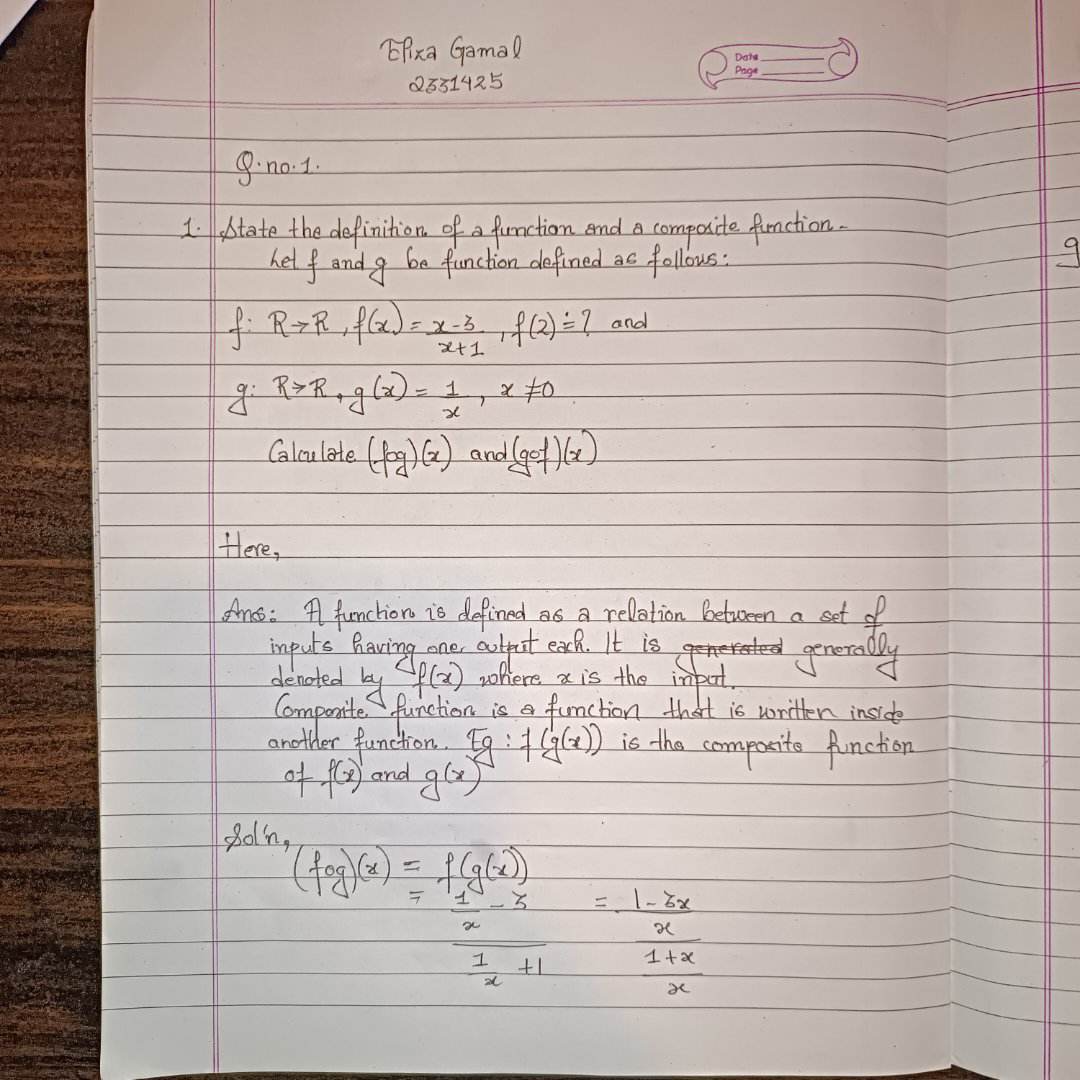 Elixa Gamal
2331425
Date
Page
Q.no.1.
1. State the definition of a function and a composite function.
Let f and g be function defined as follows:
f: R→R, f(x) = x-3/x+1, f(2) = ? and
g: R→R, g(x) = 1/x, x ≠0
Calculate (fog)(x) and (gof)(x)
Here,
Ans: A function is defined as a relation between a set of
inputs having one output each. It is generated generally
denoted by f(x) where x is the input.
Composite function is a function that is written inside
another function. Eg: f(g(x)) is the composite function
of f(x) and g(x)
Sol'n,
(fog)(x) = f(g(x))
= (1/x - 3)/(1/x + 1) = (1-3x/x)/(1+x/x)
g